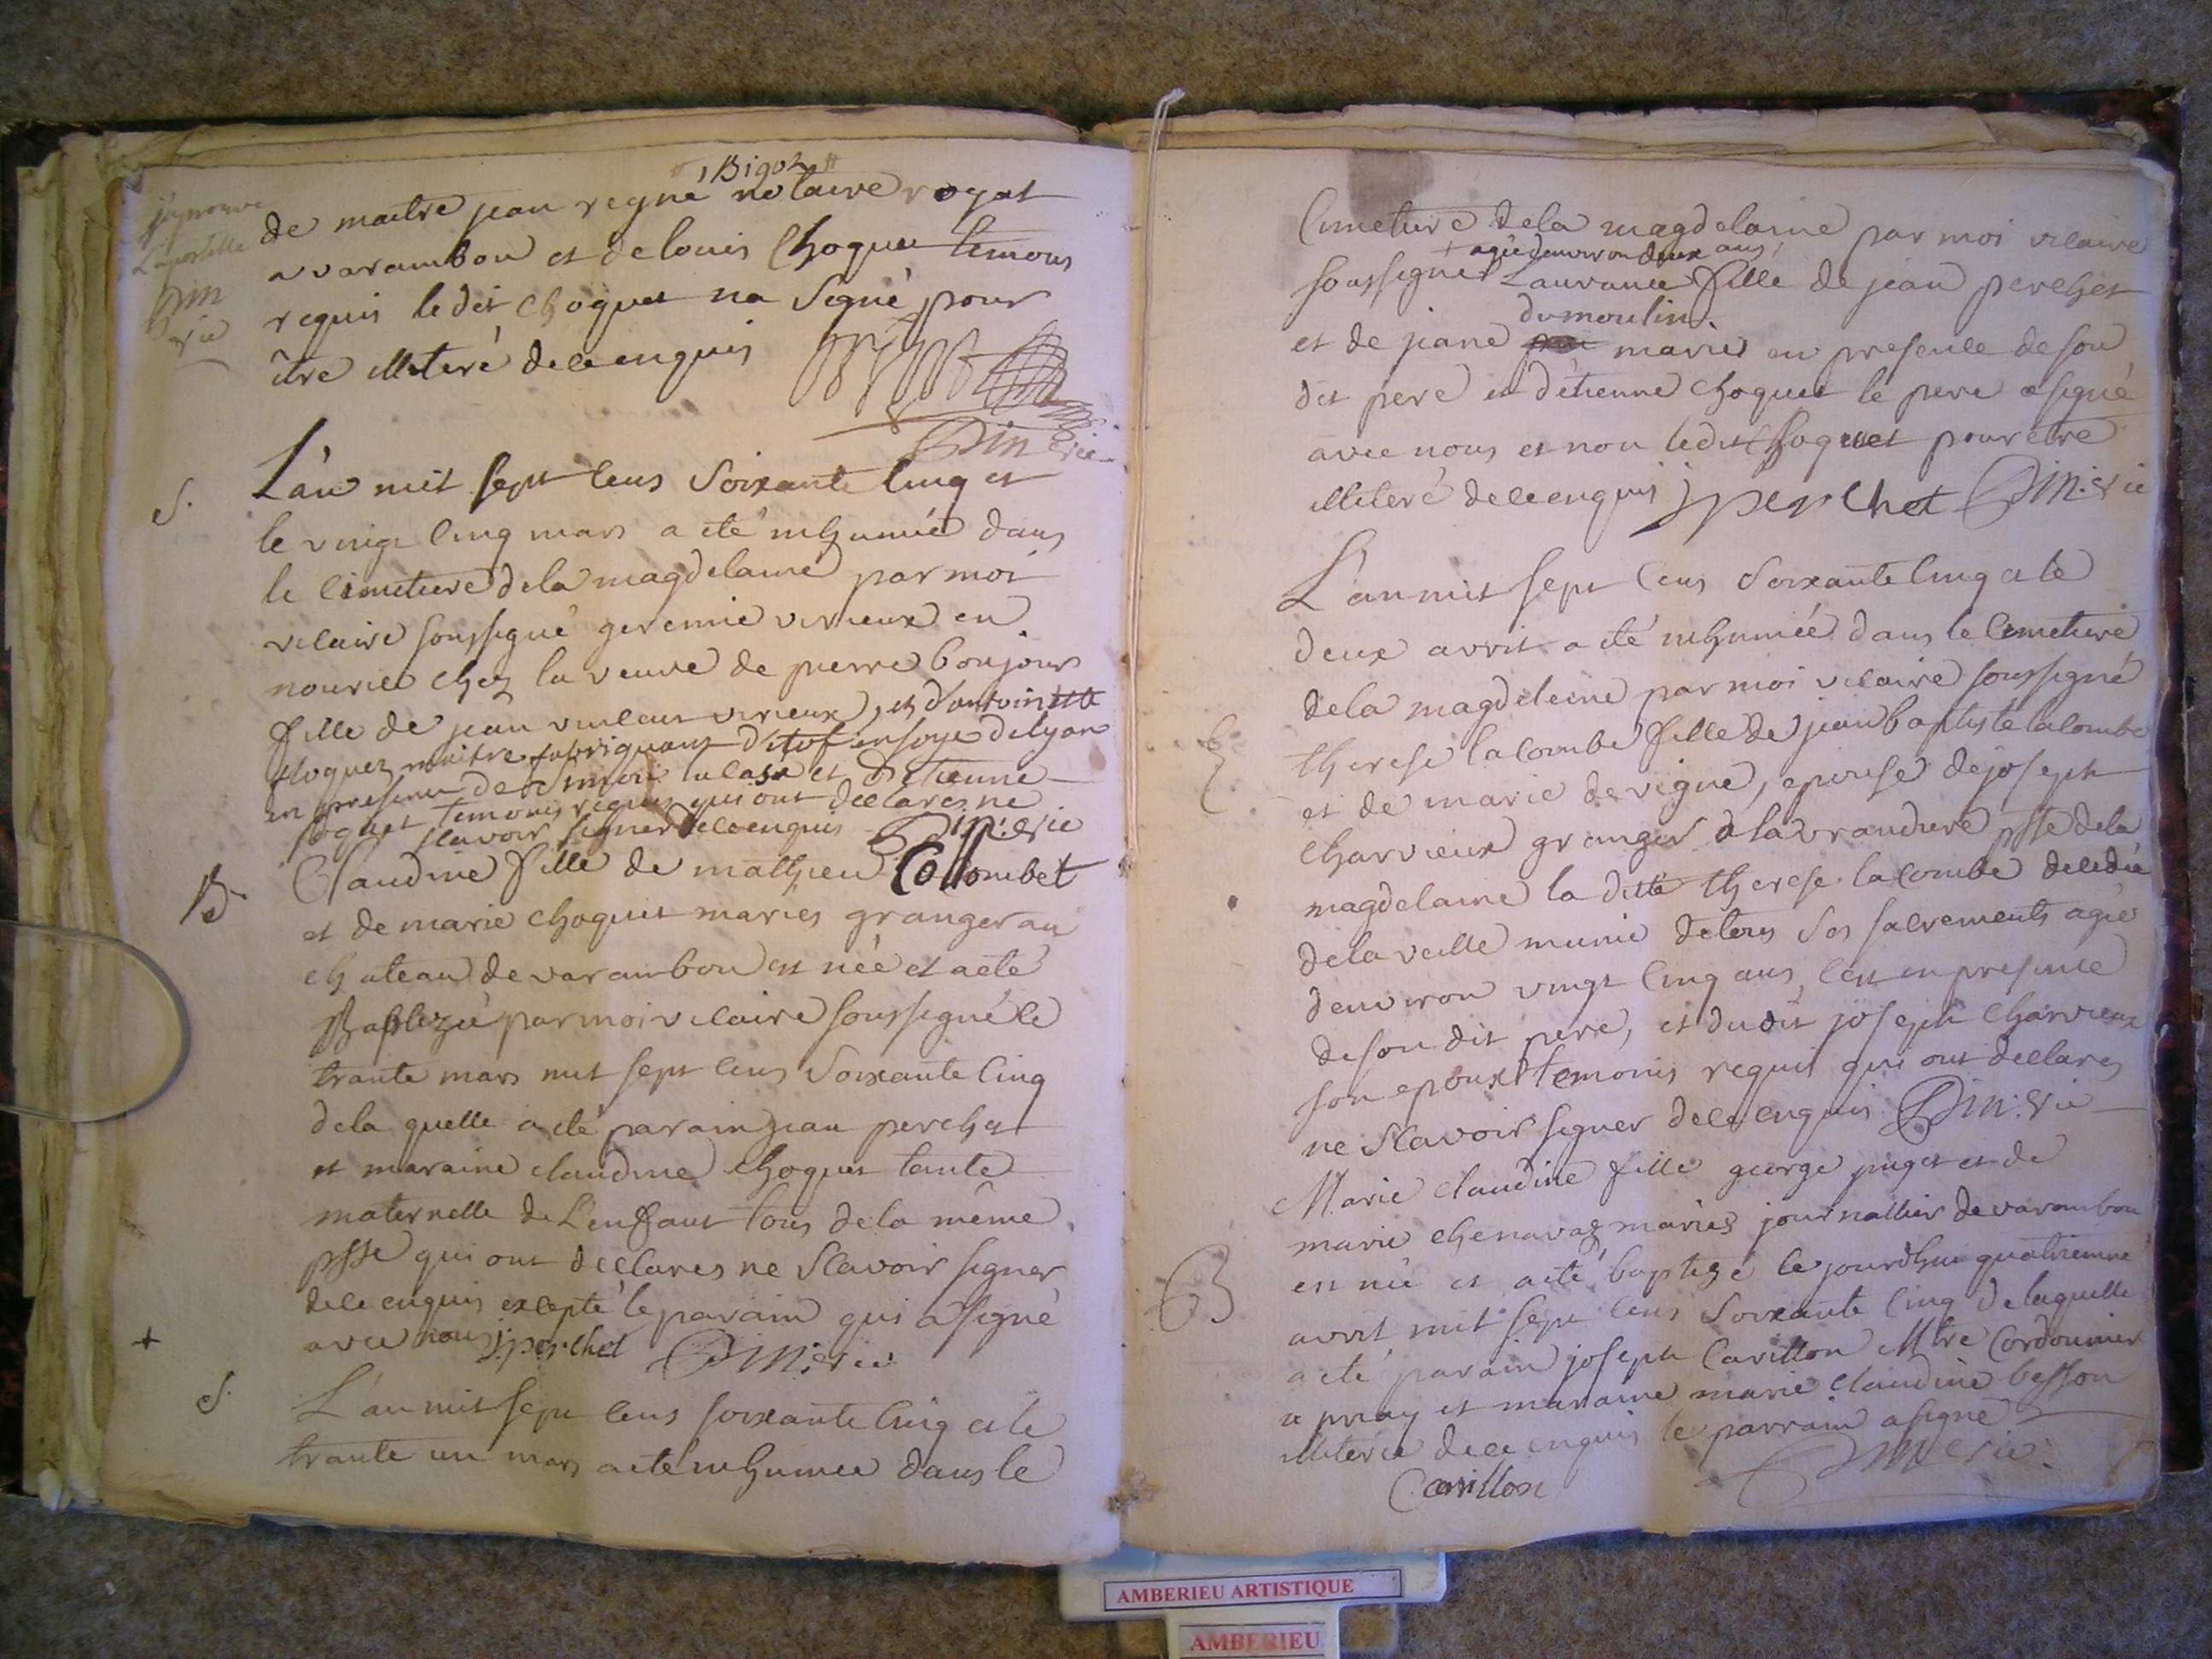 Bigot
de maitre jean regne notaire royal
a varambon et de louis Choquet temoins
requis le dit Choquet na signé pour
être illiteré de ce enquis
j'aprouve
L'apostille
Din
vic
Din vic
S.
L'an mil sept cens soixante cinq et
le vingt cinq mars a été inhumée dans
le cimetiere de la magdelaine par moi
vicaire soussigné geremie virieux en
nourice chez la veuve de pierre bonjour
fille de jean vincent virieux, et d'antoinette
floquez maitre fabriquant d'étof en soye de lyon
en presence de et d'étienne
choquet temoins requis qui ont declarés ne
scavoir signer de ce enquis Din: vic
B
Claudine fille de mathieu Collombet
et de marie choquet mariés granger au
chateau de varambon est née et a été
Baptizée par moi vicaire soussigné le
trante mars mil sept cens soixante cinq
de la quelle a été parain jean perchet
et maraine claudine choquet tante
maternelle de L'enfant tous de la même
psse qui ont declares ne scavoir signer
de ce enquis excepté le parain qui a signé
avec nous j:perchet Din: vic
+
S.
L'an mil sept cens soixante cinq et le
trante un mars a été inhumée dans le
Cimetiere de la magdelaine par moi vicaire
+ agée d'environ deux ans
soussigné Laurance fille de jean perchet
dumoulin
et de jane mariés en presence de son
dit pere et d'étienne choquet le pere a signé
avec nous et non le dit choquet pour être
illiteré de ce enquis j perchet Din: vic
L'an mil sept cens soixante cinq et le
deux avril a été inhumée dans le cimetiere
de la magdeleine par moi vicaire soussigné
therese lacombe fille de jean baptiste lacombe
et de marie devigne, epouse de joseph
charvieux granger a la vrandiere psse de la
magdelaine la ditte therese lacombe decedée
de la veille munie de tous ses sacrements agée
d'environ vingt cinq ans, c'est en presence
de son dit pere, et du dit joseph charvieux
son epoux temoins requis qui ont declares
ne scavoir signer de ce enquis Din: vic
B
Marie claudine fille george puget et de
marie chenavaz mariés journallier de varambon
est née et a été baptizé le jourdhui quatrieme
avril mil sept cens soixante cinq de laquelle
a été parain joseph Carillon Mtre Cordonnier
a priay et maraine marie claudine besson
illiterée de ce enquis le parrain a signé
Carillon Din vic:
AMBERIEU ARTISTIQUE
AMBERIEU